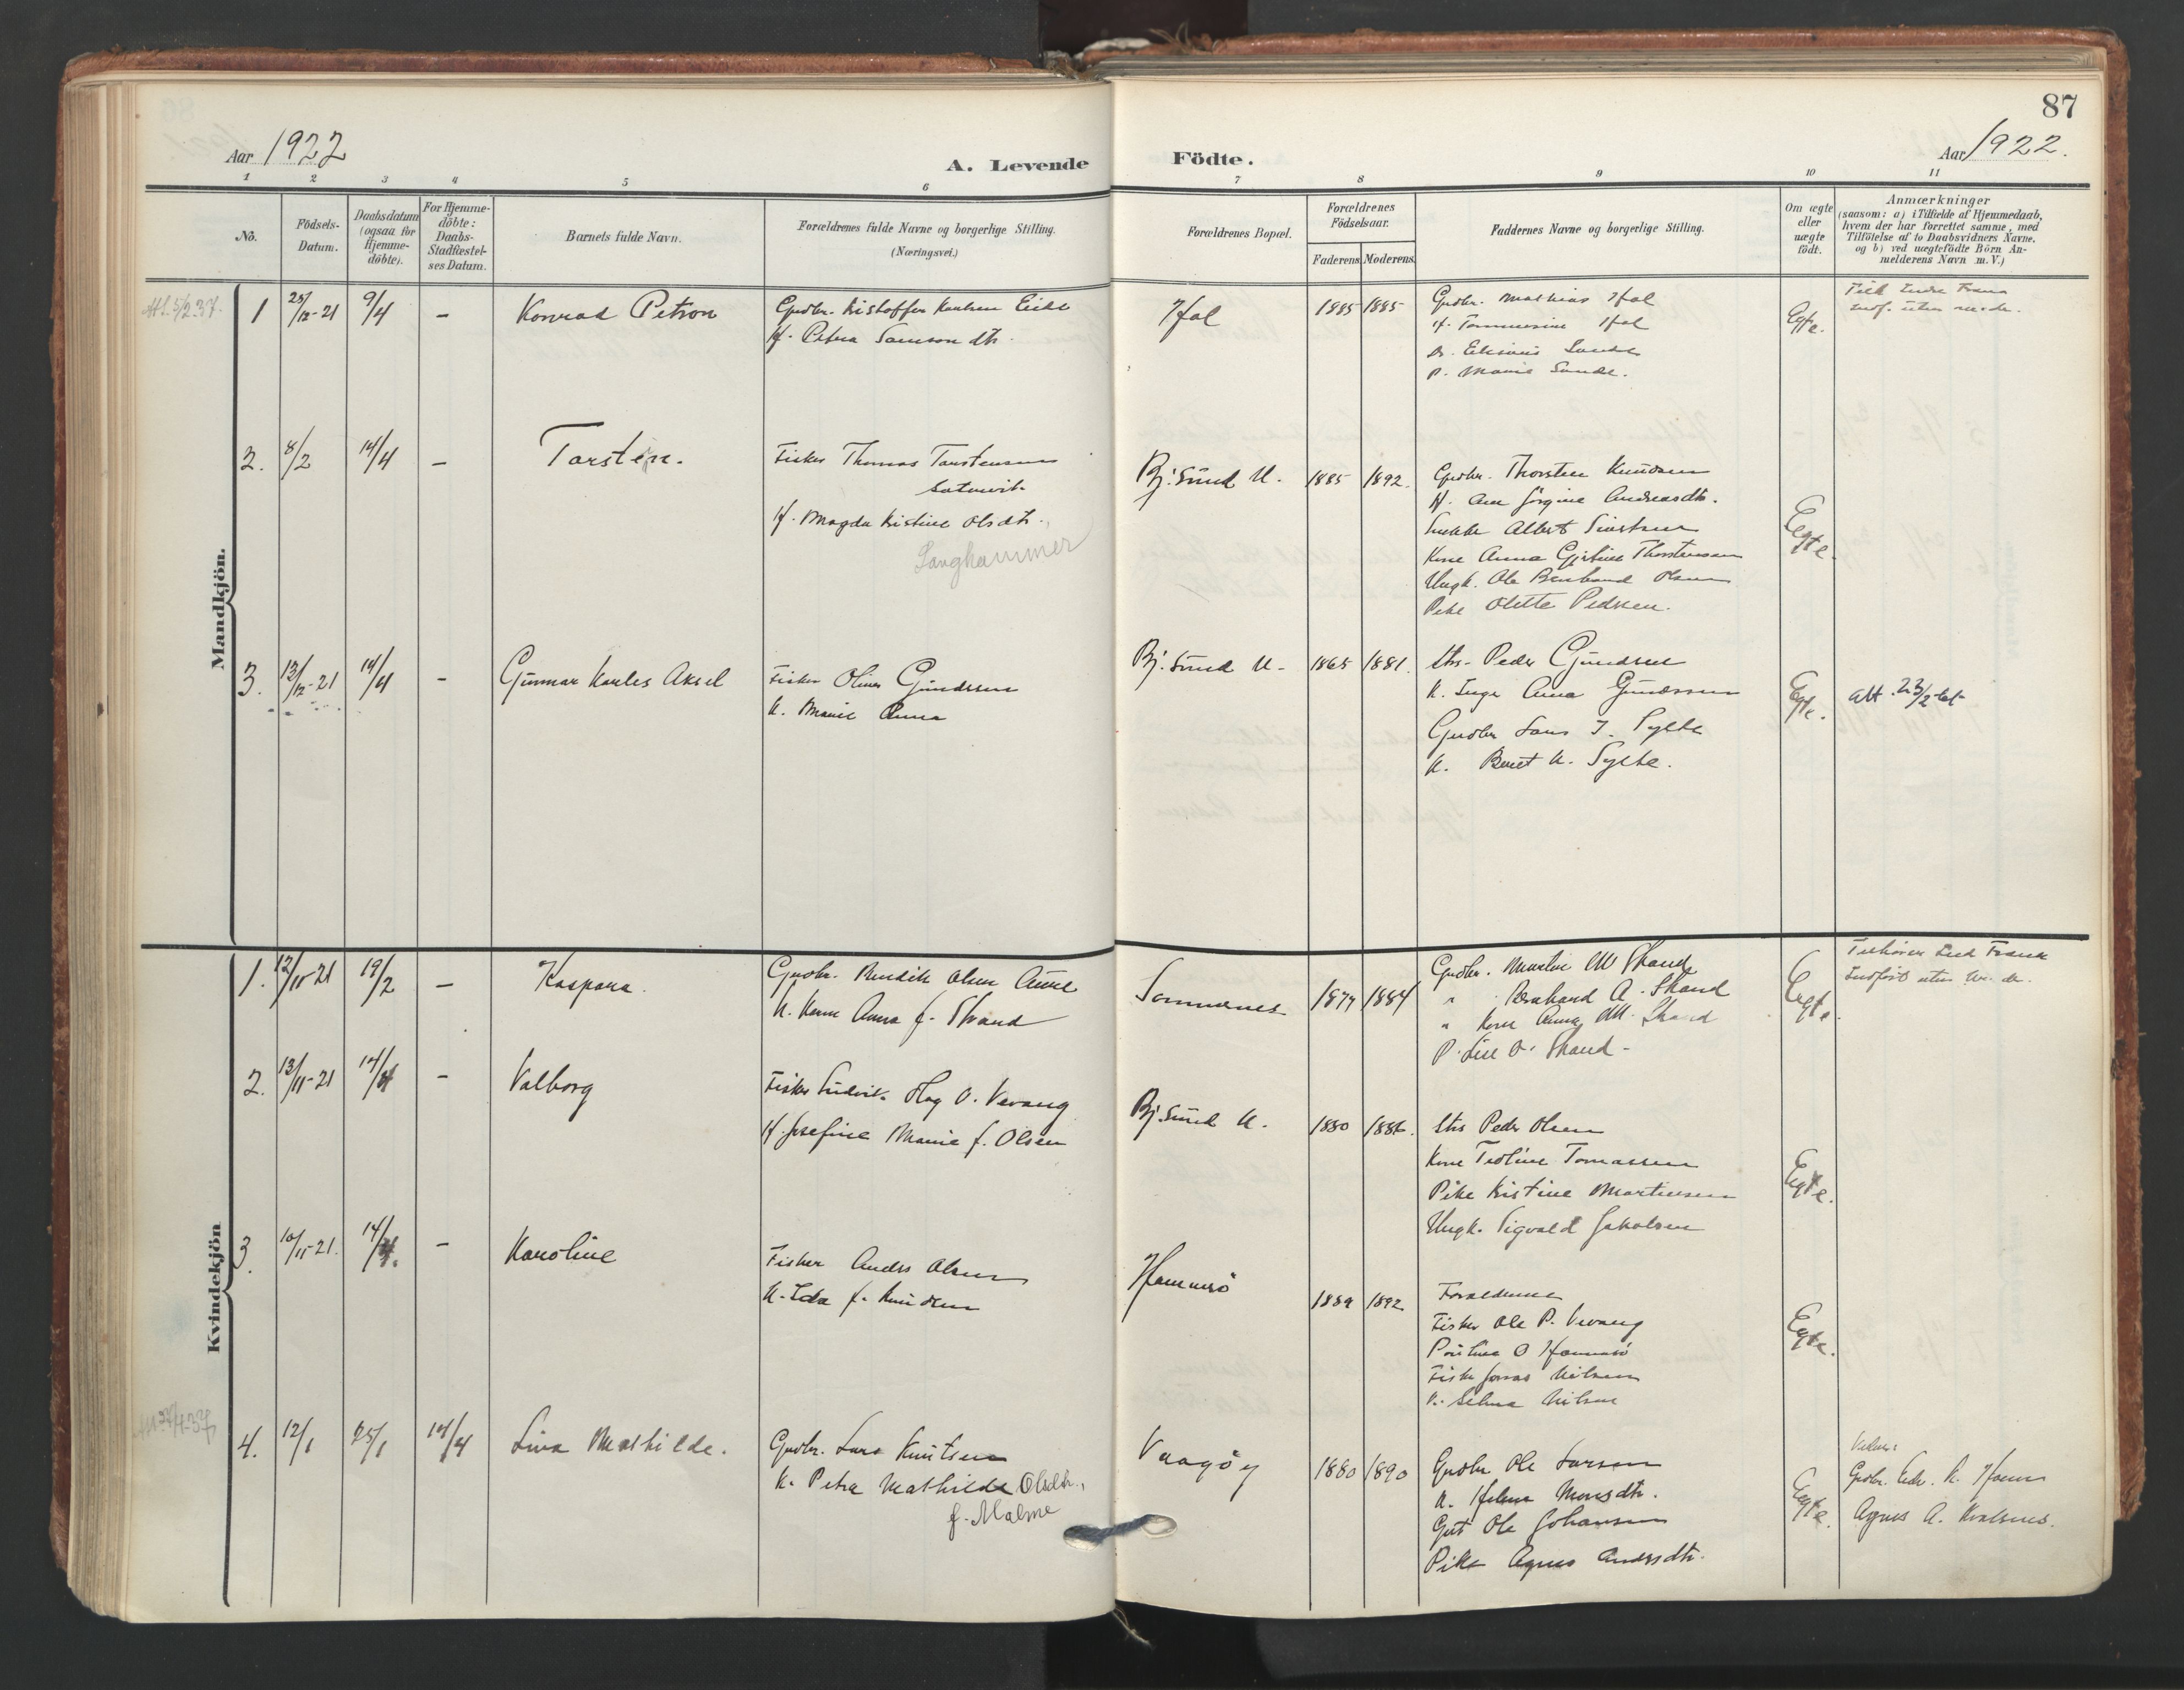 87
Aar 1922
A. Levende
Födte.
Aar 1922.
1 2 3 4 5 6 7 8 9 10 11
No.
Födsels-
Datum.
Daabsdatum
(ogsaa for
Hjemme-
döbte).
For Hjemme-
döbte:
Daabs-
Stadfæstel-
ses Datum.
Barnets fulde Navn.
Forældrenes fulde Navne og borgerlige Stilling.
(Næringsvei.)
Forældrenes Bopæl.
Forældrenes
Födselsaar.
Faderens. Moderens.
Faddernes Navne og borgerlige Stilling.
Om ægte
eller
uægte
födt.
Anmærkninger
(saasom: a) i Tilfælde af Hjemmedaab,
hvem der har forrettet samme, med
Tilföielse af to Daabsvidners Navne,
og b) ved uægtefödte Börn An-
melderens Navn m. V.)
Mandkjön.
1 25/12-21 9/4 - Konrad Petron
Gudbr. Kristoffer Knutsen Eide
H. Petra Samson dtr.
1885 1885
Gudbr. Mathias
Sande
P. Marie Sande.
Egte.
2. 8/2 14/4 - Torstein.
Fisker Thomas Torstensen
H. Magda Kristine Olsdtr.
Langhammer
Bj.sund U. 1885 1892.
Gudbr. Thorsten Knudsen
H. Ane Jörgine Andreasdtr.
Albert Sivertsen
Kone Anna Gjertine Thorstensen
Ungk. Ole Bernhard Olsen
Pike Olette Pedersen.
Eegte.
3. 12/12-21 14/4 - Gunnar Karles Aksel
Fisker Oliver Gundersen
K. Marie Anna
Bj.sund U. 1865 1881.
Peder Gundersen
K. Inga Anna Gundersen
Gudbr Lars J. Sylte
K. Beret K. Sylte.
Egte.
Att. 23/2
Kvindekjön
1. 12/11-21 19/2 - Kaspara.
Gudbr. Bendik Olsen Aure
K. Karen Anna f. Strand
Sommernes 1879 1884
Gudbr. Martin M Strand
" Bernhard A. Strand
" Kone Anna M. Strand
P. Lise O. Strand -
Eegte.
2. 13/11-21 14/4 - Valborg
Fisker Ludvik Hag O. Vevang
H. Josefine Marie f. Olsen
Bj.sund U. 1880 1886.
Peder Olsen
Kone Tedline Tomassen
Pike Kristine Martinsen
Ungk. Sigvald Jakobsen
Egte.
3. 10/11-21. 14/4. - Karoline
Fisker Anders Olsen
K. Ida f. Knudsen
Hammersö 1889 1892
Forældrene
Fisker Ole P. Vevang
Fisker Jonas Nilsen
K. Selma Nilsen
Egte.
4. 12/1 25/1 14/4 Lina Mathilde.
Gudbr. Lars Knutsen
K. Petra Mathilde Olsdtr.,
f. Malme
Vaagöy 1880 1890
Gudbr Ole Larsen
K. Helma Monsdtr.
Gut Ole Johansen
Pike Agnes Andersdtr.
Egte.
Agnes A. Kvalsnes.